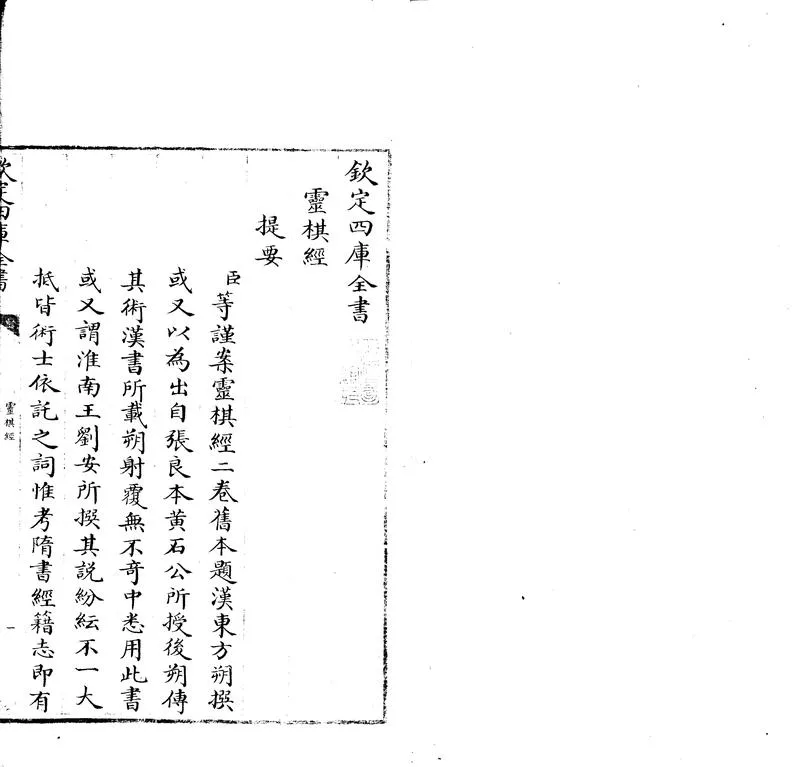 欽定四庫全書
靈棋經
提要
臣等謹案靈棋經二卷舊本題漢東方朔撰
或又以為出自張良本黃石公所授後朔傳
其術漢書所載朔射覆無不竒中悉用此書
或又謂淮南王劉安所撰其説紛紜不一大
抵皆術士依託之詞惟考隋書經籍志即有
欽定四庫全書
靈棋經
一